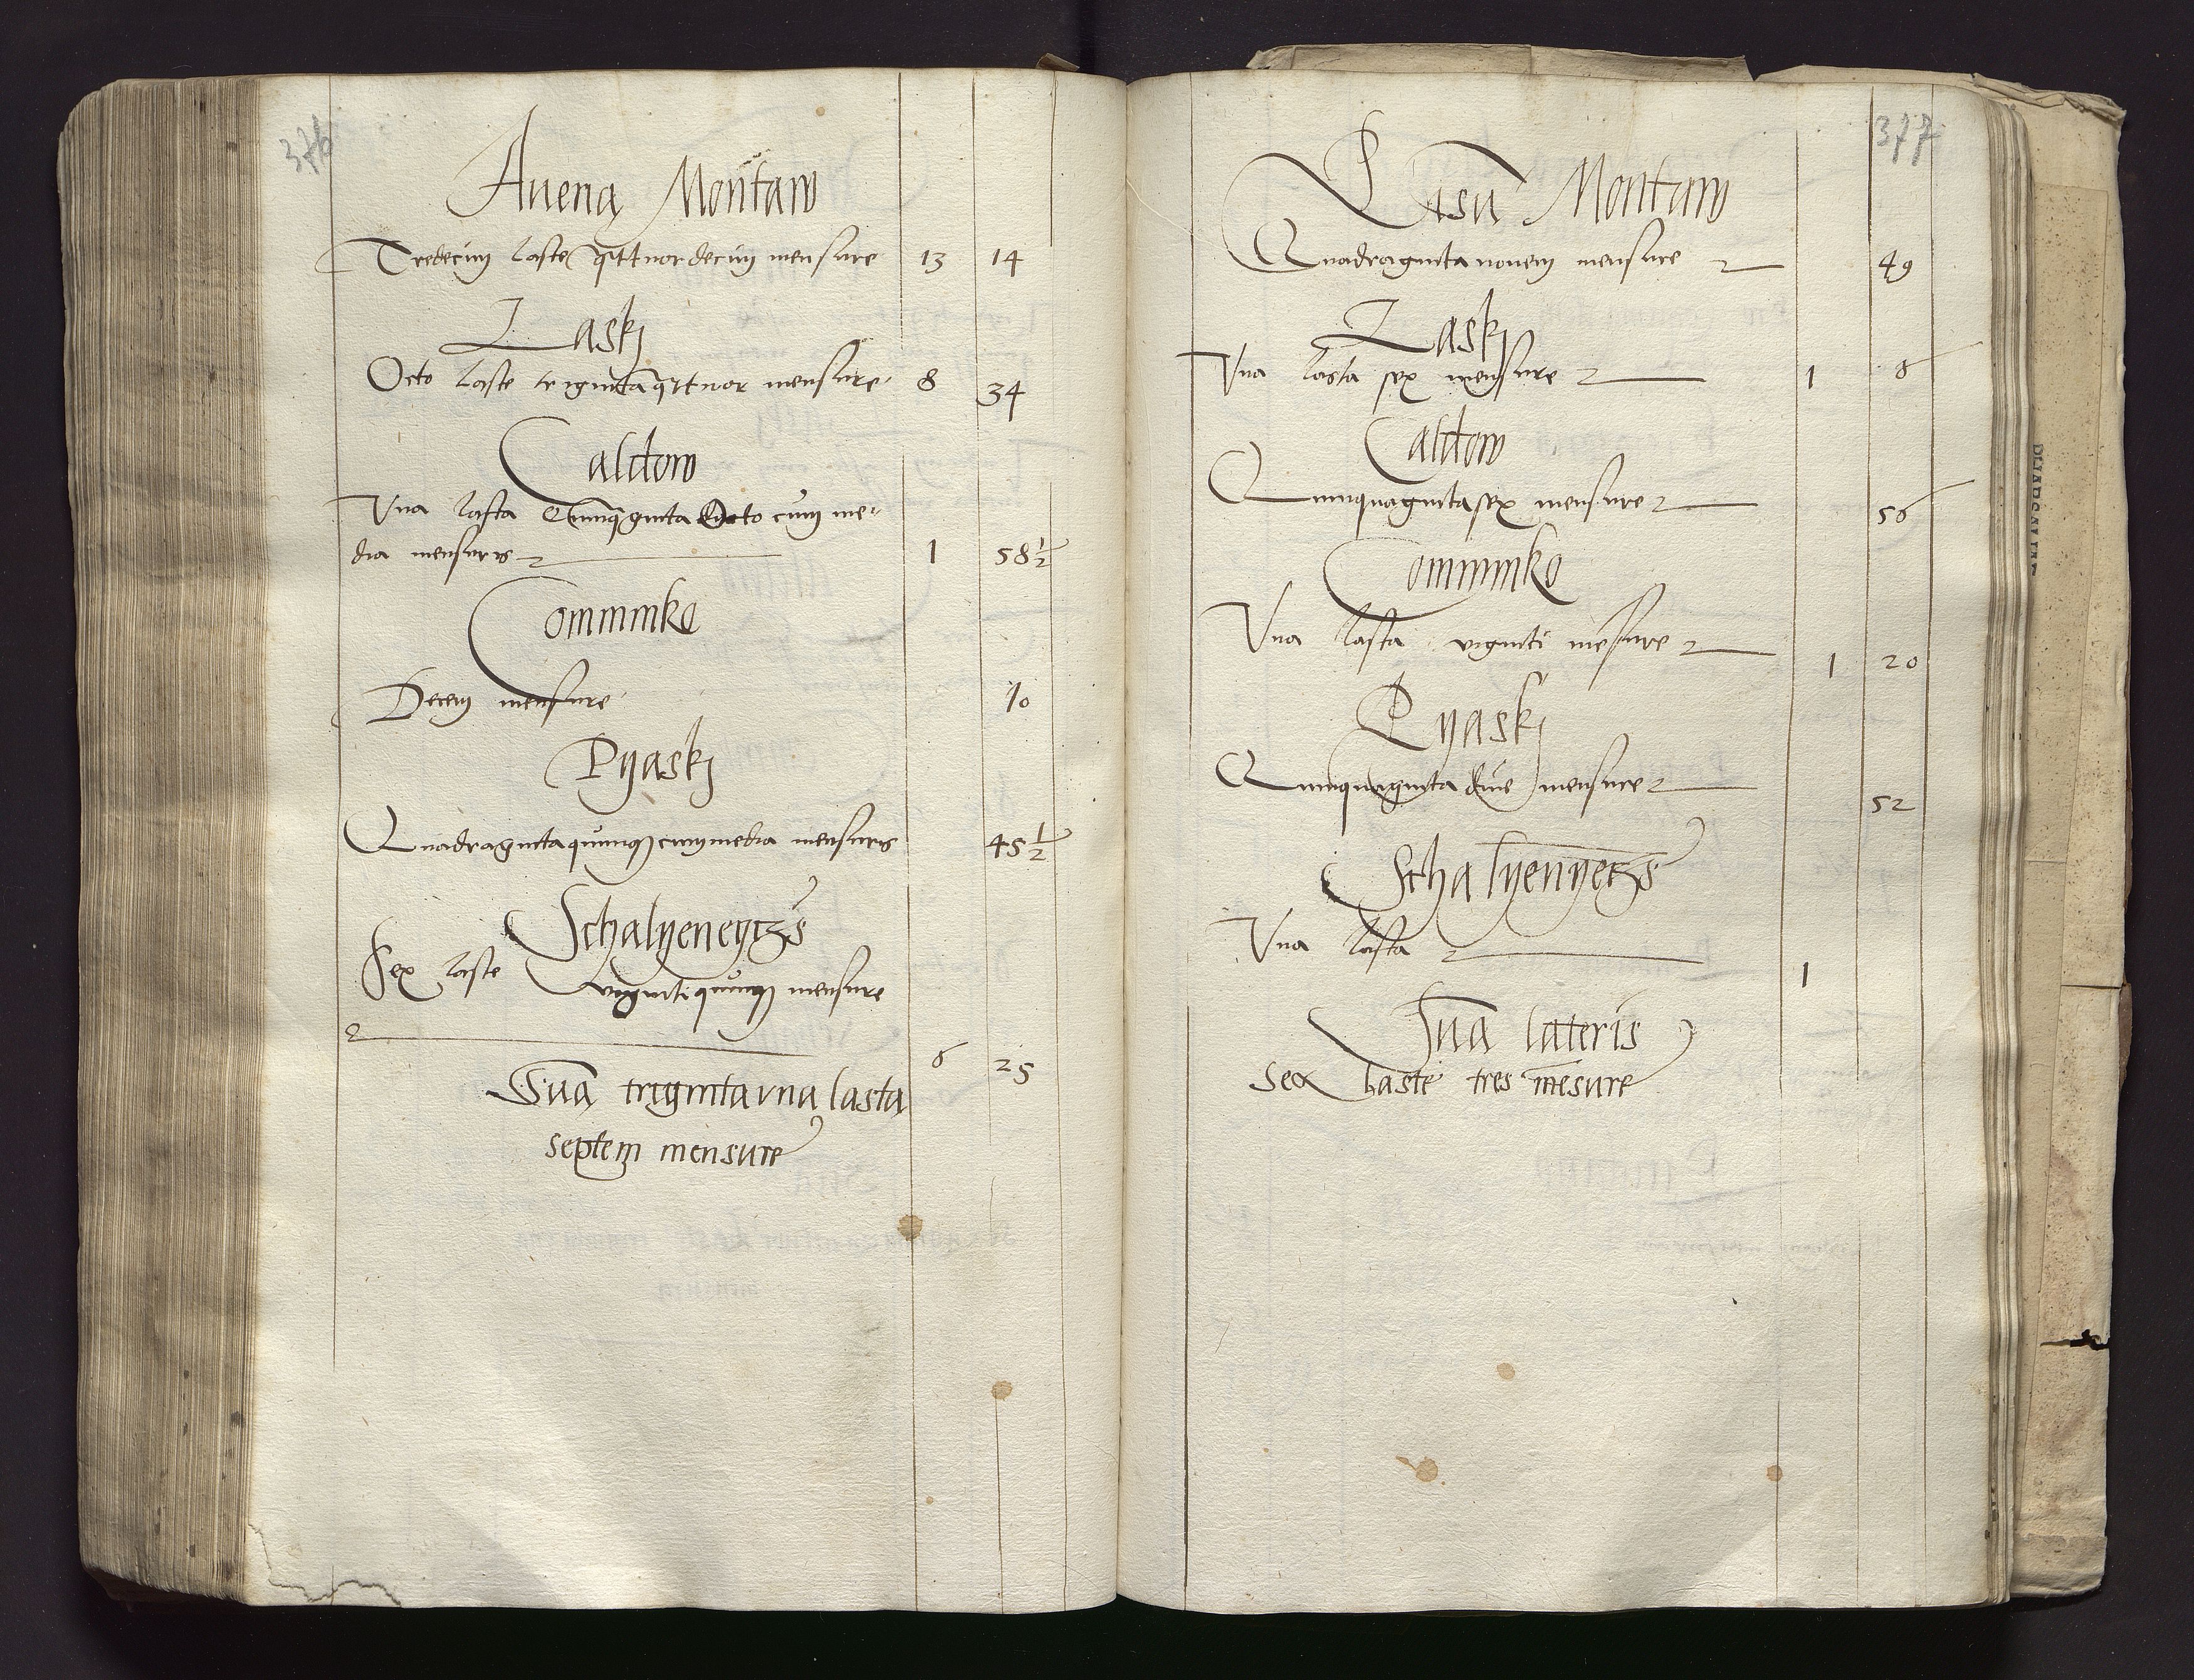 376
Auena Montaw
Tredecim laste qūttuordecim mensure 13 14
Laskj
Octo laste trigintaqūttuor mensure 8 34
Caldow
Vna lasta Quinqūginta Octo cum me-
dia mensuris 1 58 1/2
Comminko
Decem mensure 10
Pyaskj
Quadragintaquinq cum media mensuris 45 1/2
Schalyeneyczs
Sex laste vigintiquinq mensure
6 25
Sūa triginta vna lasta
septem mensure
377
Pisa Montaw
Quadraginta novem mensure 49
Laskj
Vna lasta sex mensure 1 6
Caldow
Quinquagintasex mensure 56
Comminko
Vna lasta viginti mēsure 1 20
Pyaskj
Quinquaginta due mensure 52
Schalyenyeczs
Vna lasta 1
Sūa lateris
Sex laste tres mēsure